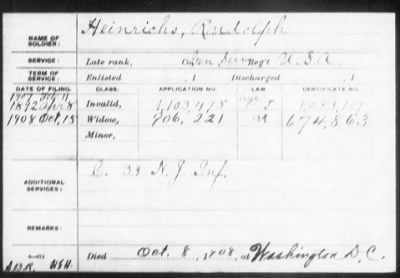 NAME OF SOLDIER: Heinrichs, Rudolph
SERVICE: Late rank, Gen Serv Reg't U.S.A.
TERM OF SERVICE: Enlisted , 1 Discharged , 1
DATE OF FILING. CLASS. APPLICATION NO. LAW. CERTIFICATE NO.
1907 July 11
1892 Apr 8 Invalid, 1,103,475
1908 Oct, 15 Widow, 906,221 674,863
Minor,
ADDITIONAL SERVICES: C. 33 N.J. Inf.
REMARKS:
Died Oct. 8, 1908, at Washington D.C.